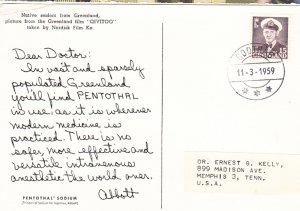 Native sealers from Greenland,
picture from the Greenland film "QIVITOQ"
taken by Nordisk Film Ko.
Dear Doctor:
In vast and sparsely
populated Greenland
you'll find PENTOTHAL
in use, as it is wherever
modern medicine is
practiced. There is no
safer, more effective and
versatile intravenous
anesthetic the world over.
Abbott
PENTOTHAL® SODIUM
11-3-1959
15
DR. ERNEST G. KELLY,
899 MADISON AVE.
MEMPHIS 3, TENN.
U.S.A.